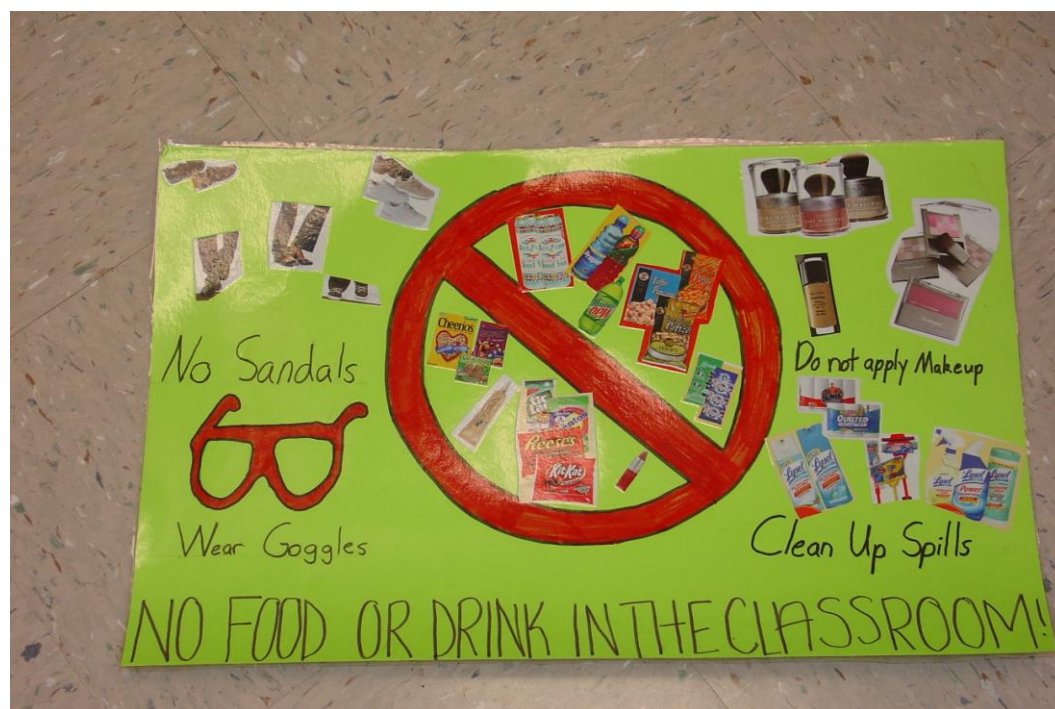 No Sandals
Wear Goggles
Cheerios
Propel
Reese's
KitKat
Do not apply Makeup
QUILTED
Lysol
Lysol
Lysol
Power
Lysol
Clean Up Spills
NO FOOD OR DRINK IN THE CLASSROOM!